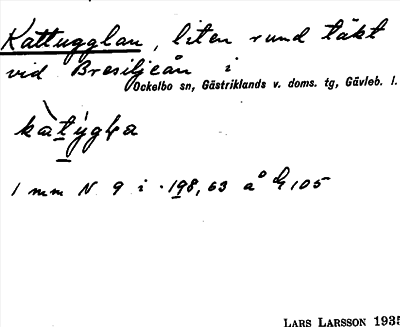 Kattugglan, liten rund täkt
vid Bresiljeån i
Ockelbo sn, Gästriklands v. doms. tg, Gävleb. l.
kàtýgla
1 mm N 9 i · 198,63 å G 105
LARS LARSSON 1935